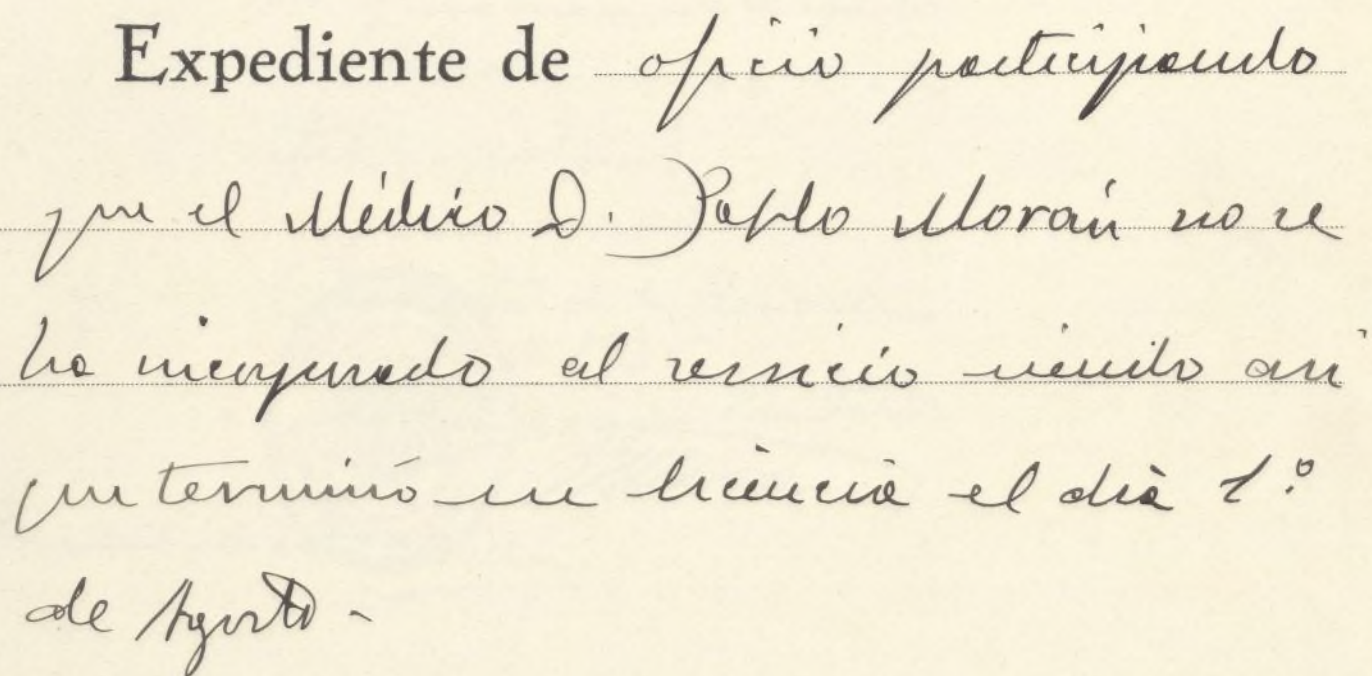 Expediente de oficio participando
que el Médico D. Pablo Morán no se
ha incorporado al servicio siendo así
que terminó su licencia el día 1.º
de Agosto -